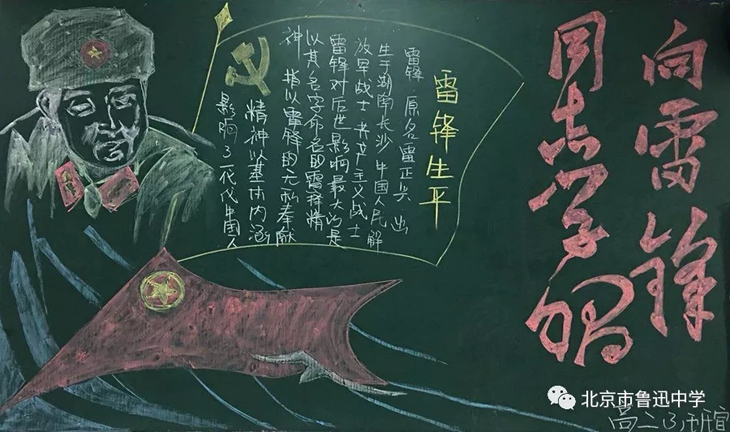 向雷锋
同志学习
雷锋生平
雷锋 原名雷正兴 出
生于湖南长沙 中国人民解
放军战士 共产主义战士
雷锋对后世影响最大的是
以其名字命名的雷锋精
神 指以雷锋的无私奉献
精神以基本内涵
影响了一代代中国人
北京市鲁迅中学
高二